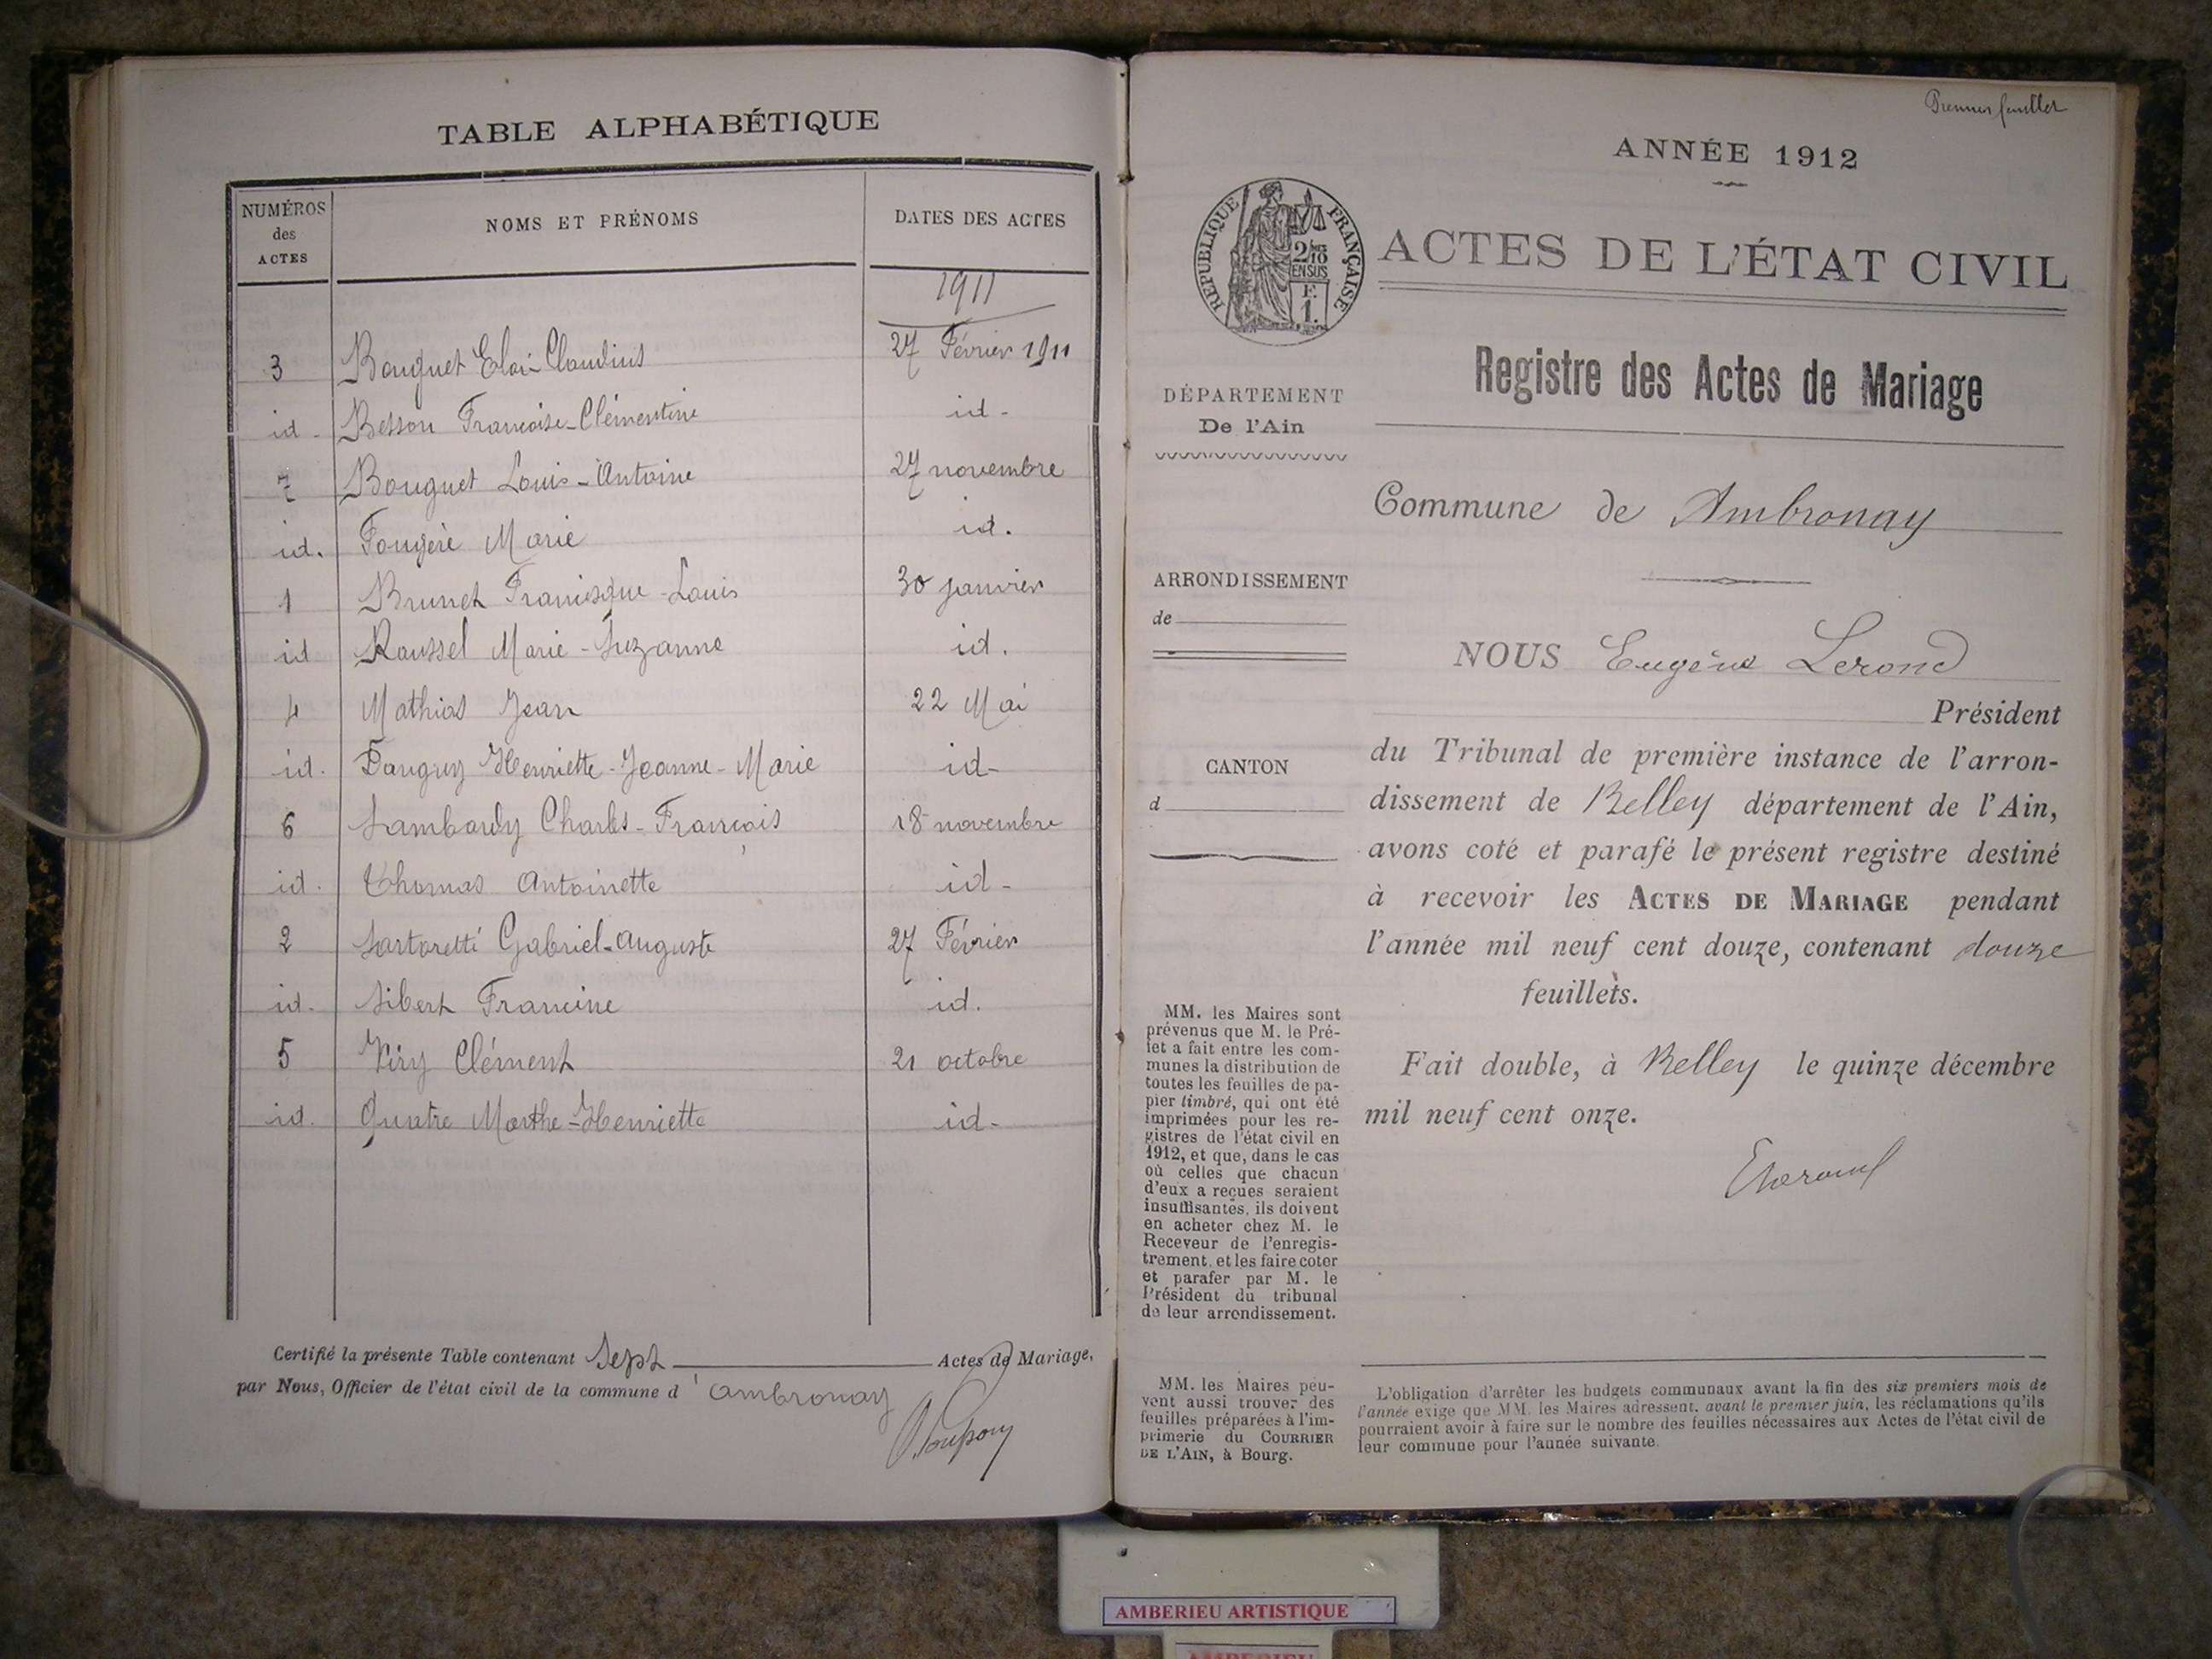 TABLE ALPHABÉTIQUE
NUMÉROS des ACTES
NOMS ET PRÉNOMS
DATES DES ACTES
1911
3 Bouguet Eloi-Claudius 27 Février 1911
id. Besson Françoise-Clémentine id.
7 Bouguet Louis-Antoine 27 novembre
id. Fougère Marie id.
1 Brunet Francisque-Louis 30 janvier
id Roussel Marie-Suzanne id.
4 Mathias Jean 22 Mai
id. Danguy Henriette-Jeanne-Marie id-
6 Sambardy Charles-François 18 novembre
id. Thomas Antoinette id-
2 Sartoretti Gabriel-Auguste 27 Février
id. Sibert Francine id.
5 Viry Clément 21 octobre
id. Quatre Marthe-Henriette id-
Certifié la présente Table contenant Sept Actes de Mariage,
par Nous, Officier de l'état civil de la commune d'Ambronay
Premier feuillet
ANNÉE 1912
RÉPUBLIQUE FRANÇAISE
2/10
EN SUS
F.
1.
ACTES DE L'ÉTAT CIVIL
Registre des Actes de Mariage
DÉPARTEMENT
De l'Ain
Commune de Ambronay
ARRONDISSEMENT
de
CANTON
d
NOUS Eugène Lerond
Président
du Tribunal de première instance de l'arron-
dissement de Belley département de l'Ain,
avons coté et parafé le présent registre destiné
à recevoir les ACTES DE MARIAGE pendant
l'année mil neuf cent douze, contenant douze
feuillets.
Fait double, à Belley le quinze décembre
mil neuf cent onze.
ELerond
MM. les Maires sont
prévenus que M. le Pré-
fet a fait entre les com-
munes la distribution de
toutes les feuilles de pa-
pier timbré, qui ont été
imprimées pour les re-
gistres de l'état civil en
1912, et que, dans le cas
où celles que chacun
d'eux a reçues seraient
insuffisantes, ils doivent
en acheter chez M. le
Receveur de l'enregis-
trement, et les faire coter
et parafer par M. le
Président du tribunal
de leur arrondissement.
MM. les Maires peu-
vent aussi trouver des
feuilles préparées à l'im-
primerie du COURRIER
DE L'AIN, à Bourg.
L'obligation d'arrêter les budgets communaux avant la fin des six premiers mois de
l'année exige que MM. les Maires adressent, avant le premier juin, les réclamations qu'ils
pourraient avoir à faire sur le nombre des feuilles nécessaires aux Actes de l'état civil de
leur commune pour l'année suivante.
AMBERIEU ARTISTIQUE
AMBERIEU